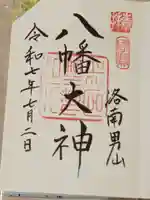 洛南男山
八幡大神
令和七年七月二日